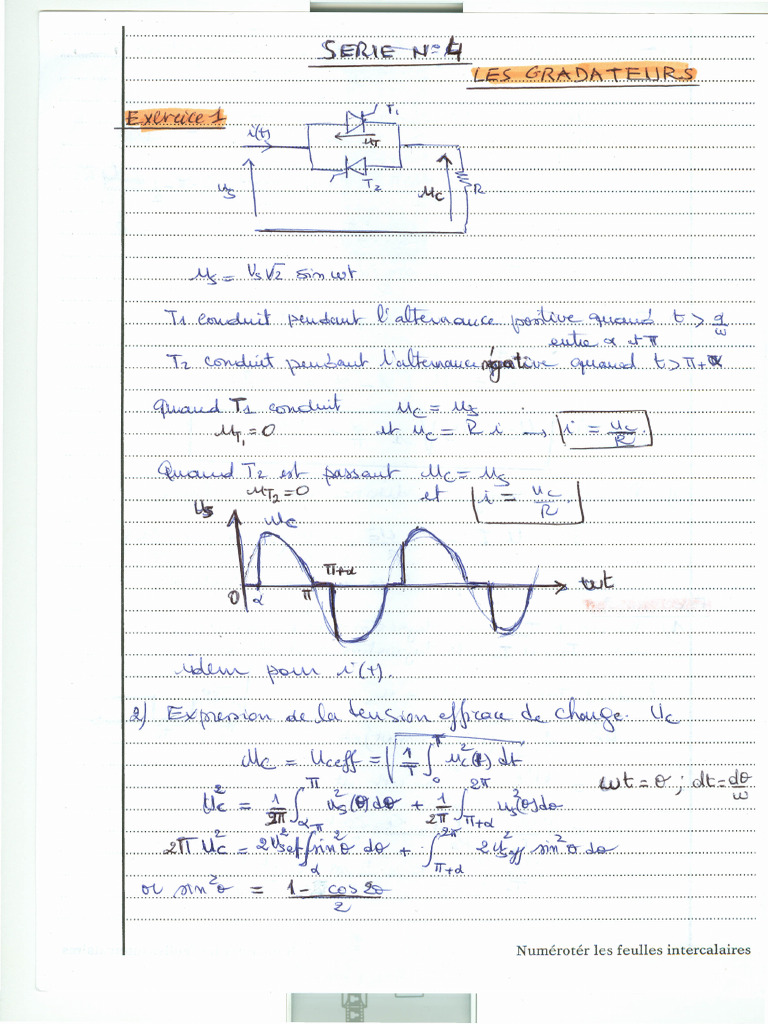 SERIE N° 4
LES GRADATEURS
Exercice 1
i(t)
T1
uT
T2
us
uc
R
us = Vs√2 sin wt
T1 conduit pendant l'alternance positive quand t > α/w
entre α et π
T2 conduit pendant l'alternance négative quand t > π+α
Quand T1 conduit uc = us
uT1 = 0 et uc = R i → i = uc/R
Quand T2 est passant uc = us
uT2 = 0 et i = uc/R
Us
uc
π+α
0 α π wt
idem pour i(t).
2) Expression de la tension efficace de charge. Uc
Uc = Uceff = √(1/T ∫₀ᵀ uc²(t) dt
wt = θ ; dt = dθ/w
Uc² = 1/2π ∫ us²(θ) dθ + 1/2π ∫ us²(θ) dθ
2π Uc² = 2Us²eff ∫ sin²θ dθ + ∫ 2Us²eff sin²θ dθ
or sin²θ = 1 - cos 2θ / 2
Numérotér les feulles intercalaires